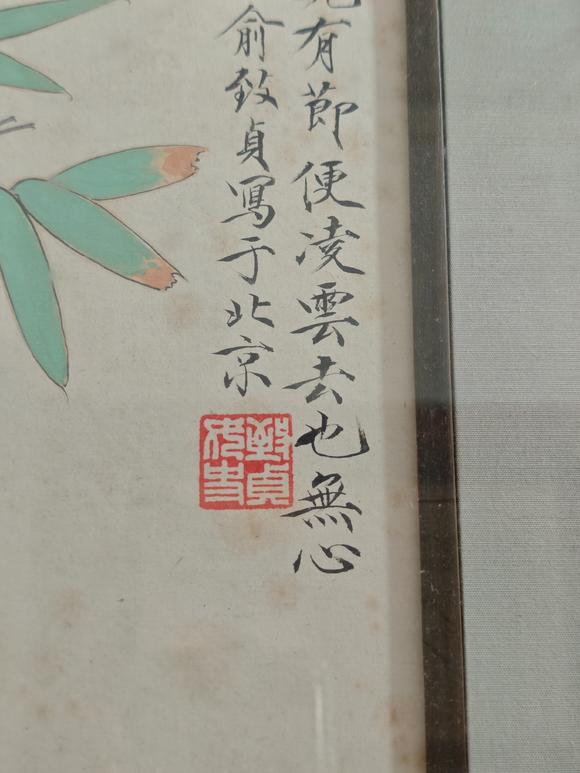 有節便凌雲去也無心
俞致貞寫于北京
致貞